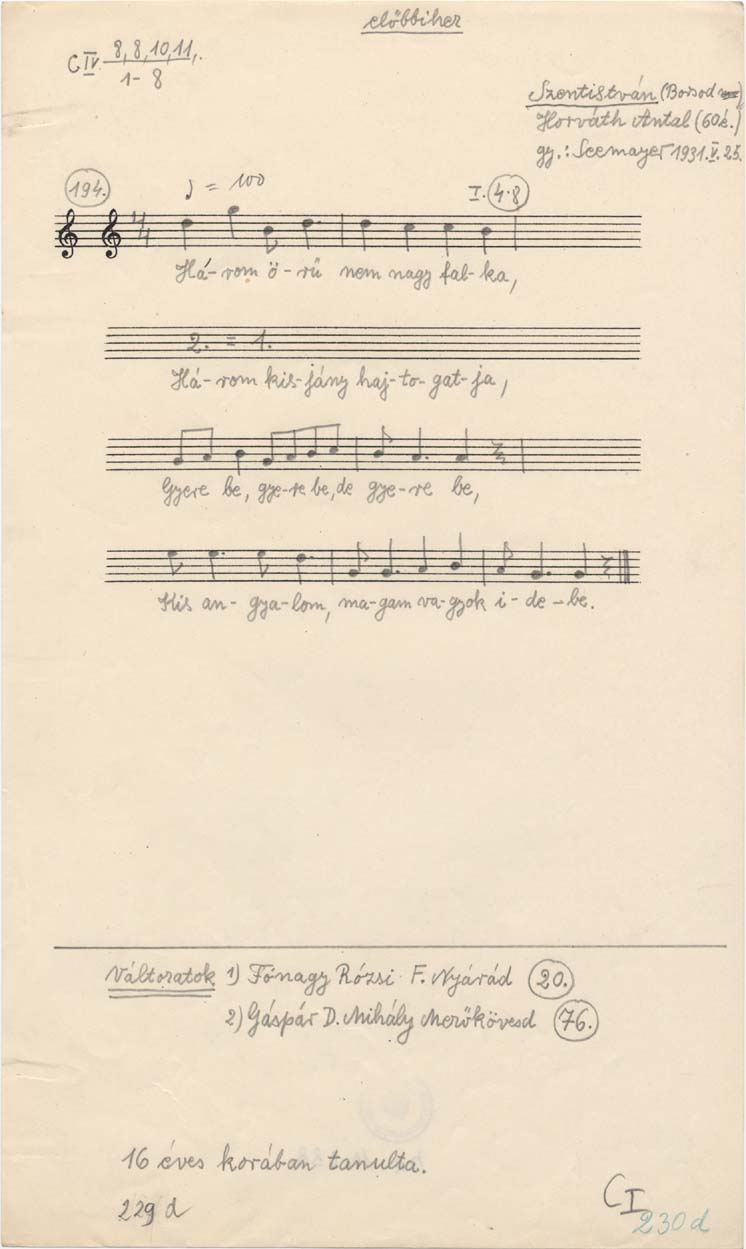 előbbihez
C IV. 8, 8, 10, 11,.
1-8
Szentistván (Borsod m.)
Horváth Antal (60 é.)
gy.: Seemayer 1931. V. 25.
194.
♩ = 100
I. 4·8
4/4
Há-rom ö-rű nem nagy fal-ka,
2. = 1.
Há-rom kis-jány haj-to-gat-ja,
Gyere be, gye-re be, de gye-re be,
Kis an-gya-lom, ma-gam va-gyok i-de-be.
Változatok 1) Fónagy Rózsi F. Nyárád 20.
2) Gáspár D. Mihály Mezőkövesd 76.
16 éves korában tanulta.
229 d
C I
230 d